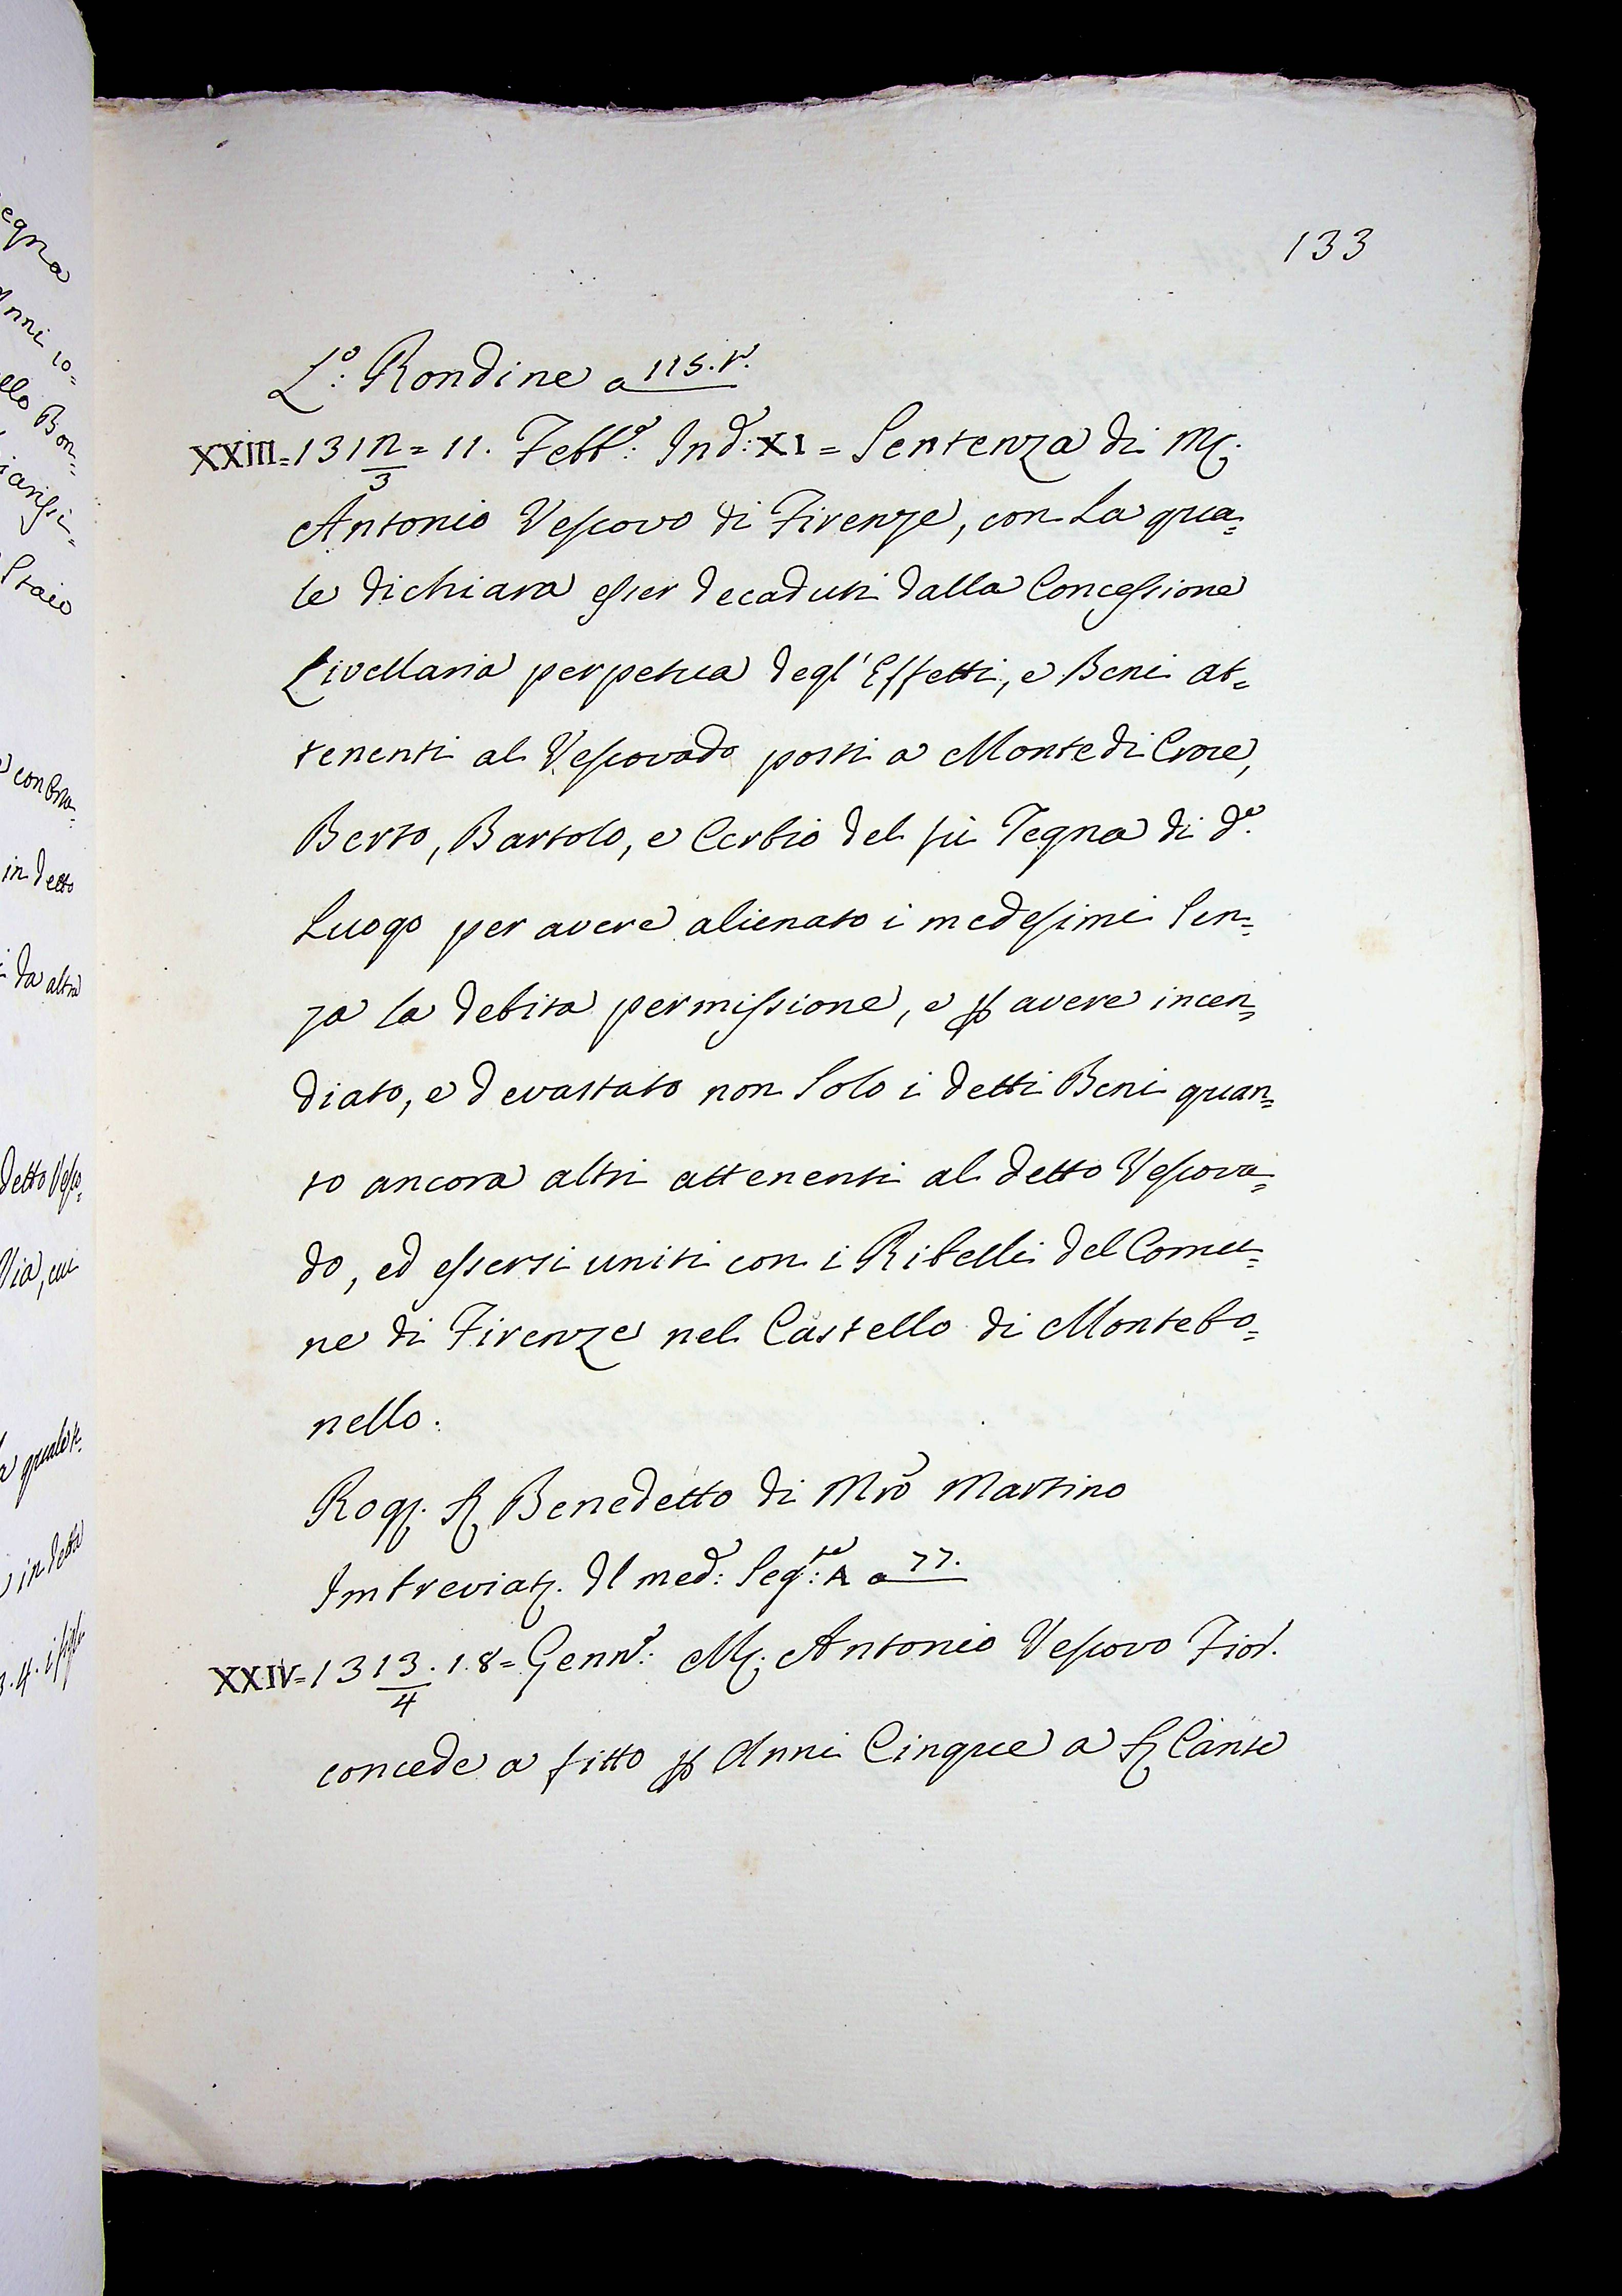 133
L.º Rondine a 115. t.º
XXIII = 1312/3 = 11. Febb.º Ind.: XI = Sentenza di M.
Antonio Vescovo di Firenze, con la qua=
le dichiara esser decaduti dalla Concessione
Livellaria perpetua degl'Effetti, e Beni at=
tenenti al Vescovado posti a Monte di Croce,
Berto, Bartolo, e Cerbio del fù Tegna di d.º
Luogo per avere alienato i medesimi sen=
za la debita permissione, e p avere incen=
diato, e devastato non solo i detti Beni quan=
to ancora altri attenenti al detto Vescova=
do, ed essersi uniti con i Ribelli del Comu=
ne di Firenze nel Castello di Montebo=
nello.
Rog. S. Benedetto di Mro Martino
Imbreviat. Il med.: Seg.: A a 77.
XXIV = 1313/4. 18 = Genn.º: M. Antonio Vescovo Fior.
concede a fitto p Anni Cinque a S. Cante
egna
Anni 10=
ello Bon=
Staio
in detto
da altra
detto Vesco=
Via, cui
in detta